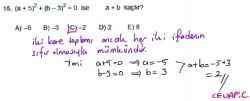 18. (a + 5)² + (b – 3)² = 0 ise a + b kaçtır?
A) –5 B) –3 C) –2 D) 2 E) 8
iki kare toplamı ancak her iki ifadenin
sıfır olmasıyla mümkündür.
Yani a+5=0 ⇒ a=-5 > a+b=-5+3
b-3=0 ⇒ b=3 = 2 //
CEVAP: C